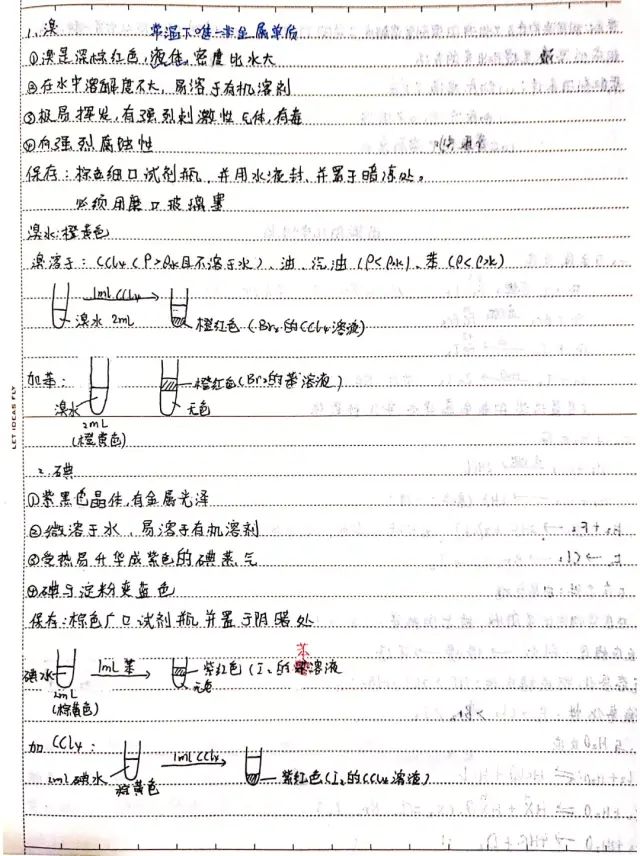 1、溴 常温下唯一非金属单质
①溴是深棕红色,液体,密度比水大
②在水中溶解度不大,易溶于有机溶剂
③极易挥发,有强烈刺激性气体,有毒
④有强烈腐蚀性
保存:棕色细口试剂瓶,并用水液封,并置于暗冻处。
必须用磨口玻璃塞
溴水:橙黄色
溴溶于:CCl₄(ρ>ρ水且不溶于水)、油、汽油(ρ<ρ水)、苯(ρ<ρ水)
1mL CCl₄
溴水 2mL
橙红色(Br₂的CCl₄溶液)
加苯:
橙红色(Br₂的苯溶液)
溴水
无色
2mL
(橙黄色)
LET IDEAS FLY
2.碘
①紫黑色晶体,有金属光泽
②微溶于水,易溶于有机溶剂
③受热易升华成紫色的碘蒸气
④碘与淀粉变蓝色
保存:棕色广口试剂瓶并置于阴暗处
苯
碘水
1mL苯
紫红色(I₂的溶液
无色
2mL
(棕黄色)
加 CCl₄:
1mL CCl₄
2mL 碘水
棕黄色
紫红色(I₂的CCl₄溶液)